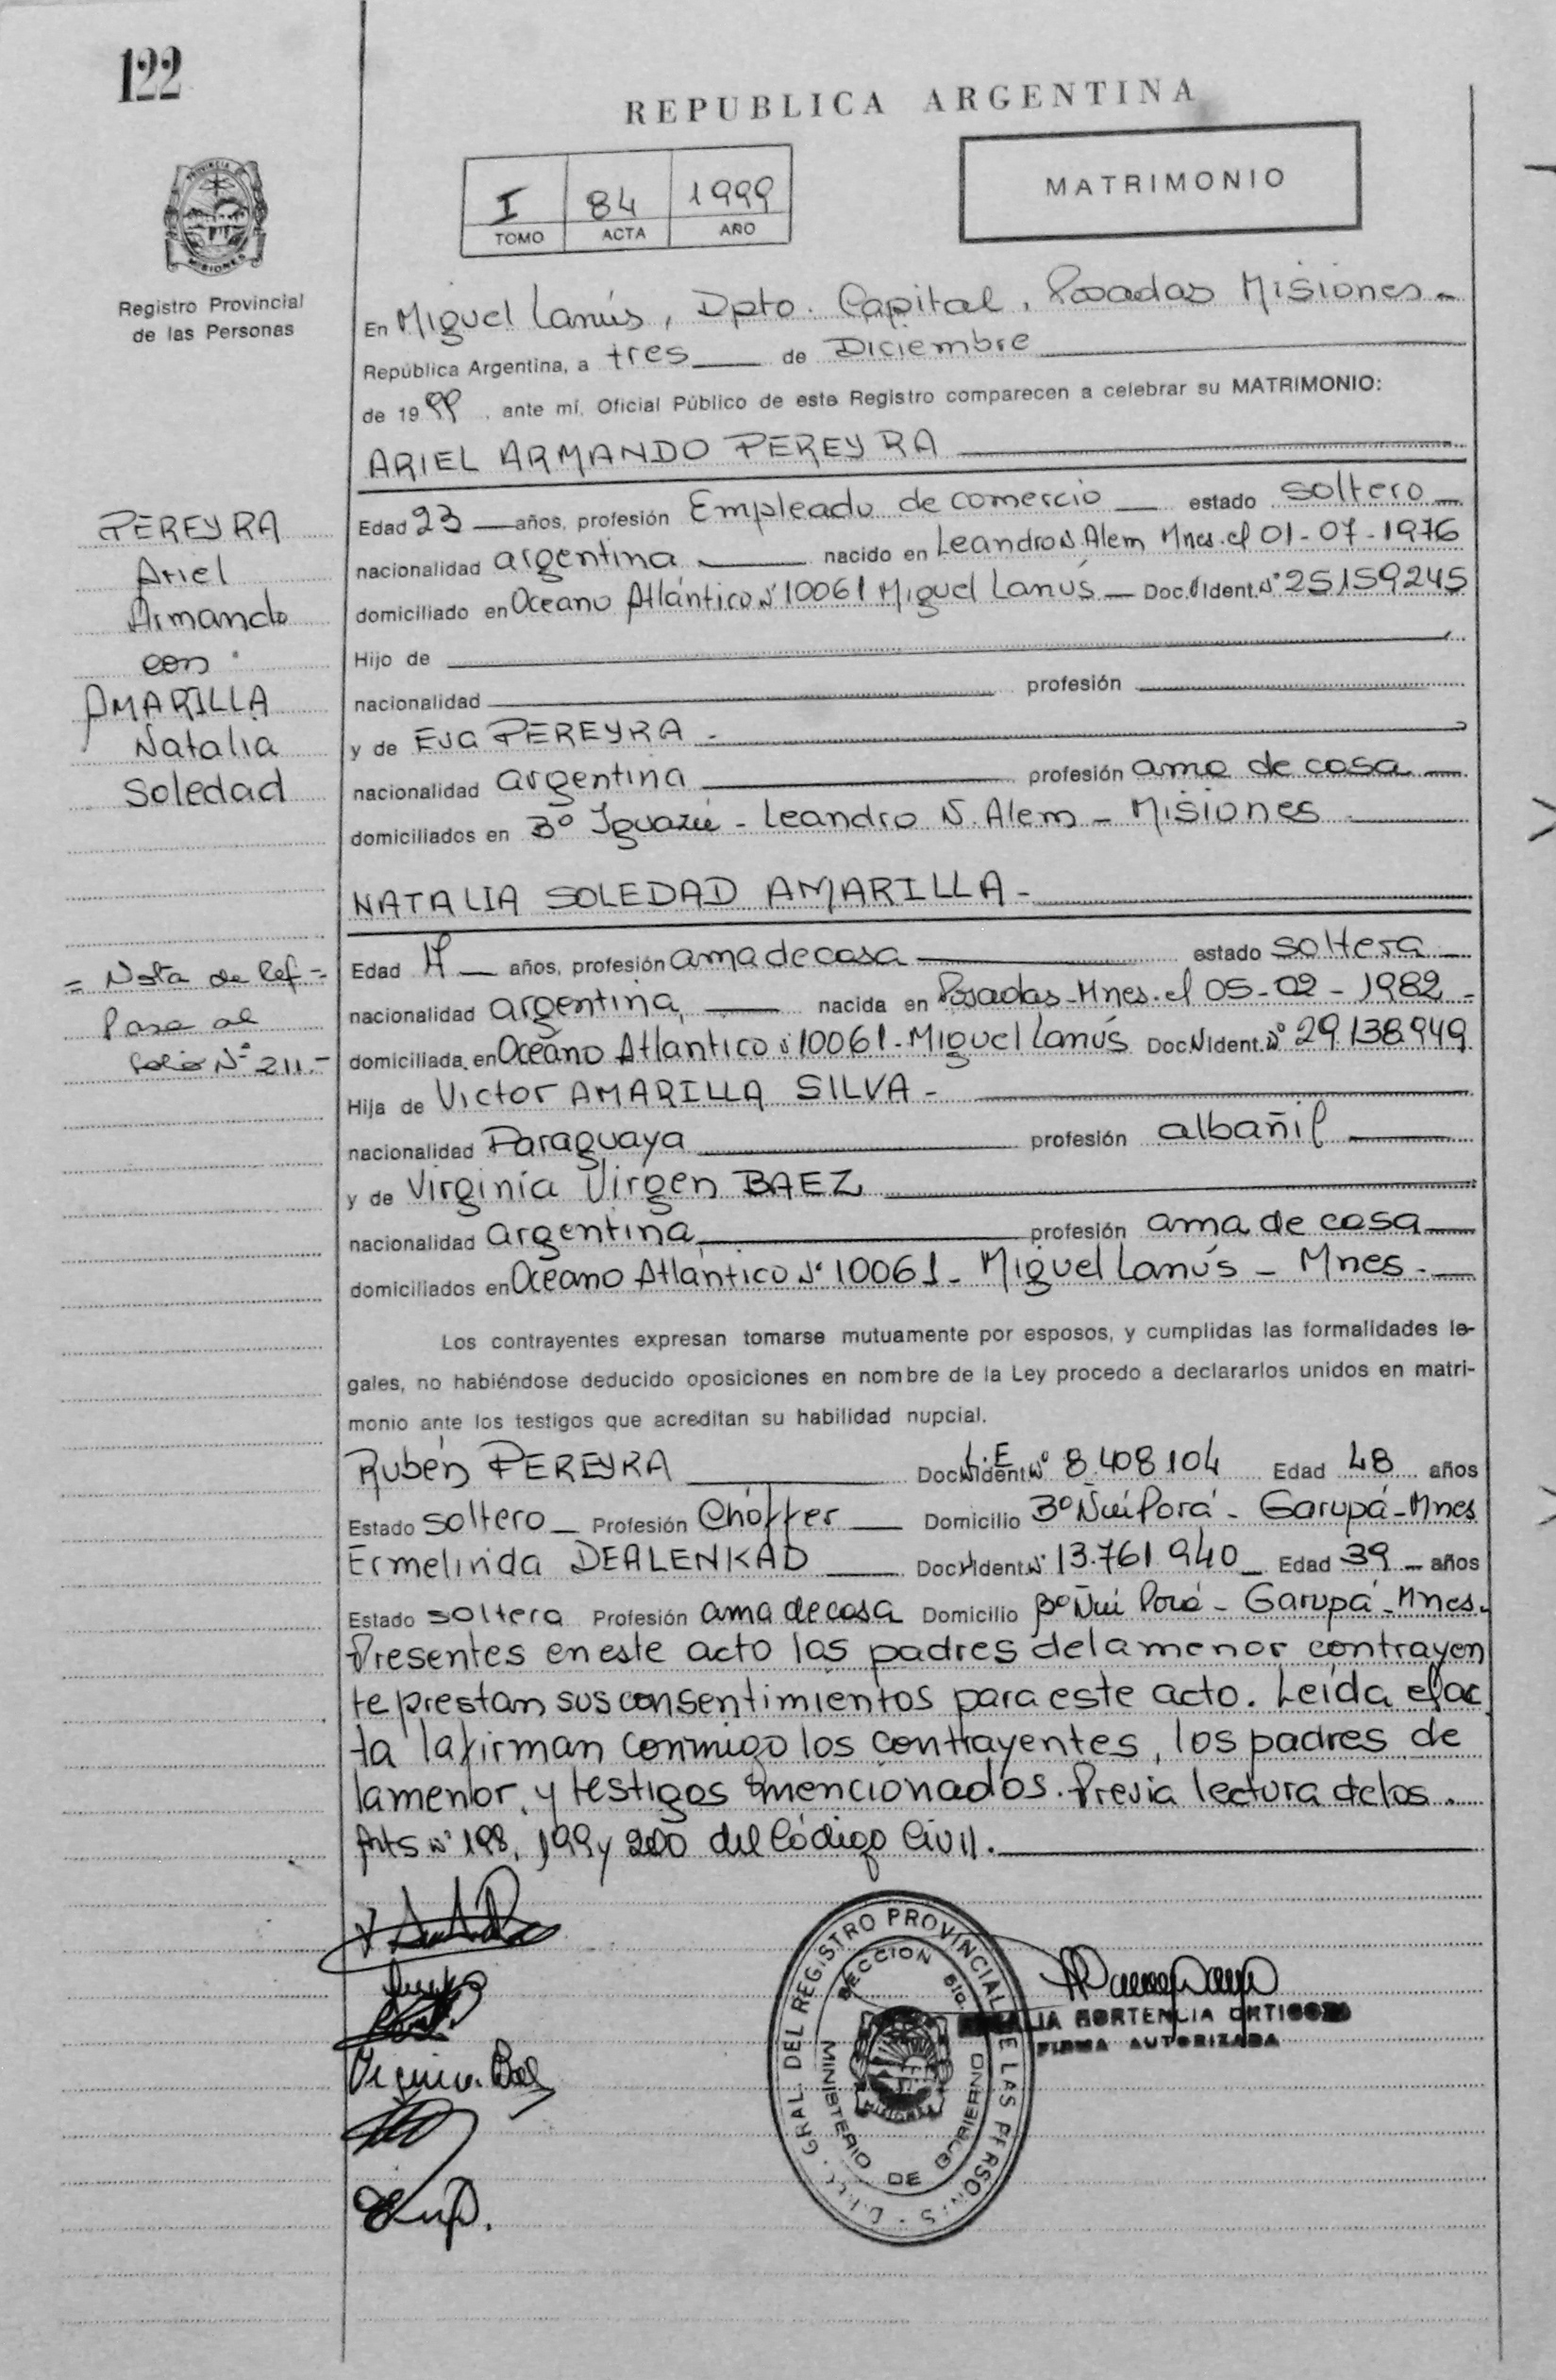 122
REPUBLICA ARGENTINA
PROVINCIA
MISIONES
Registro Provincial
de las Personas
I 84 1999
TOMO ACTA AÑO
MATRIMONIO
En Miguel Lanús, Dpto. Capital, Posadas Misiones -
República Argentina, a tres de Diciembre
de 1999, ante mí, Oficial Público de este Registro comparecen a celebrar su MATRIMONIO:
ARIEL ARMANDO PEREYRA
Edad 23 años, profesión Empleado de comercio estado soltero
nacionalidad argentina nacido en Leandro N. Alem Mnes. el 01-07-1976
domiciliado en Oceano Atlántico Nº 10061 Miguel Lanús - Doc. N. Ident. Nº 25159245
Hijo de
nacionalidad profesión
y de Eva PEREYRA -
nacionalidad argentina profesión ama de casa
domiciliados en Bº Iguazú - Leandro N. Alem - Misiones
NATALIA SOLEDAD AMARILLA -
Edad 17 años, profesión ama de casa estado soltera
nacionalidad argentina, nacida en Posadas - Mnes. el 05-02-1982 -
domiciliada en Océano Atlantico Nº 10061 - Miguel Lanús Doc. N. Ident. Nº 29.138.949
Hija de Victor AMARILLA SILVA -
nacionalidad Paraguaya profesión albañil
y de Virginia Virgen BAEZ
nacionalidad argentina profesión ama de casa
domiciliados en Océano Atlántico Nº 10061 - Miguel Lanús - Mnes -
Los contrayentes expresan tomarse mutuamente por esposos, y cumplidas las formalidades le-
gales, no habiéndose deducido oposiciones en nombre de la Ley procedo a declararlos unidos en matri-
monio ante los testigos que acreditan su habilidad nupcial.
Rubén PEREYRA Doc. L.E Ident. Nº 8.408.104 Edad 48 años
Estado soltero Profesión Chóffer Domicilio Bº Ñuí Porá - Garupá - Mnes
Ermelinda DEALENKAD Doc. N. Ident. Nº 13.761.940 Edad 39 años
Estado soltera Profesión ama de casa Domicilio Bº Ñuí Porá - Garupá - Mnes.
Presentes en este acto los padres de la menor contrayen
te prestan sus consentimientos para este acto. Leída el ac
ta la firman conmigo los contrayentes, los padres de
la menor, y testigos mencionados. Previa lectura de los
Arts Nº 198, 199 y 200 del Código Civil.
PEREYRA
Ariel
Armando
con
AMARILLA
Natalia
Soledad
= Nota de Ref =
Pasa al
Folio Nº 211.-
GRAL. DEL REGISTRO PROVINCIAL DE LAS PERSONAS
SECCION 6ta.
MINISTERIO DE GOBIERNO
HORTENCIA ORTIGOZA
FIRMA AUTORIZADA